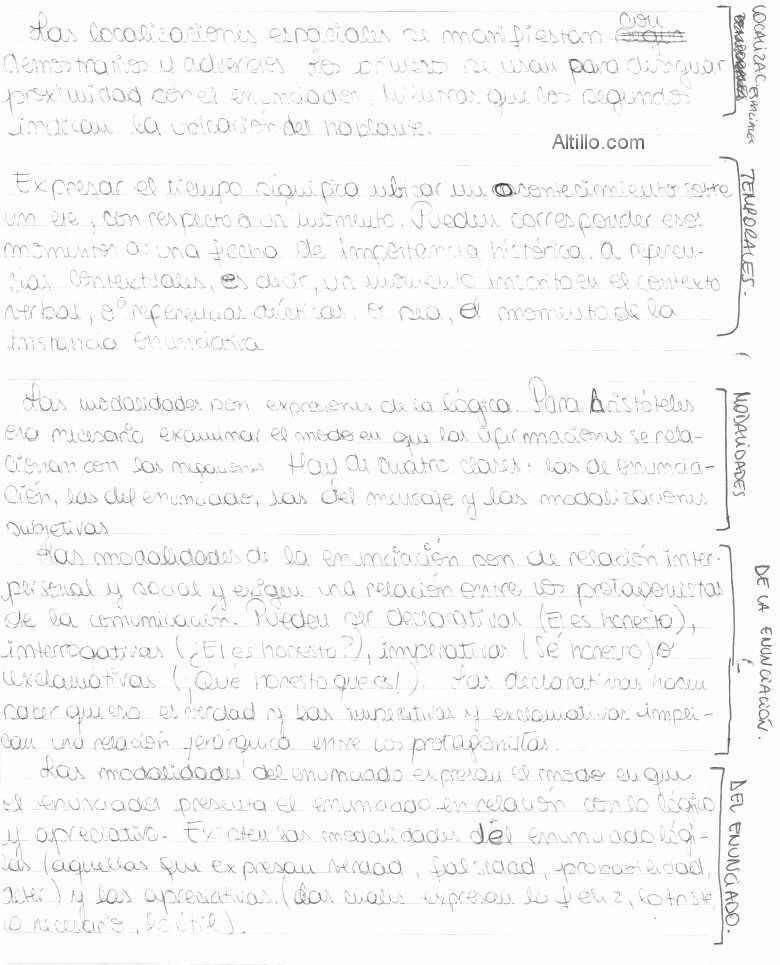 Las localizaciones espaciales se manifiestan con
demostrativos y adverbios. Los primeros se usan para distinguir
proximidad con el enunciador. Mientras que los segundos
indican la ubicación del hablante.
LOCALIZAC. ESPACIALES
Altillo.com
Expresar el tiempo significa ubicar un acontecimiento sobre
un eje, con respecto a un momento. Pueden corresponder esos
momentos a: una fecha de importancia histórica. a referen-
cias contextuales, es decir, un momento inscrito en el contexto
verbal, o a referencias deícticas. o sea, el momento de la
instancia enunciativa
TEMPORALES.
Las modalidades son expresiones de la lógica. Para Aristóteles
era necesario examinar el modo en que las afirmaciones se rela-
cionan con las negaciones. Hay de cuatro clases: las de enuncia-
ción, las del enunciado, las del mensaje y las modalizaciones
subjetivas
MODALIDADES
Las modalidades de la enunciación son de relación inter-
personal y social y exigen una relación entre los protagonistas
de la comunicación. Pueden ser declarativas (El es honesto),
interrogativas (¿El es honesto?), imperativas (Sé honesto) o
exclamativas (¡Qué honesto que es!). Las declarativas hacen
saber que eso es verdad y las imperativas y exclamativas impli-
can una relación jerárquica entre los protagonistas.
DE LA ENUNCIACIÓN.
Las modalidades del enunciado expresan el modo en que
el enunciador presenta el enunciado en relación con lo lógico
y apreciativo. Existen las modalidades del enunciado lógi-
cas (aquellas que expresan verdad, falsedad, probabilidad,
) y las apreciativas. (las cuales expresan lo feliz, lo triste,
lo necesario, lo útil).
DEL ENUNCIADO.